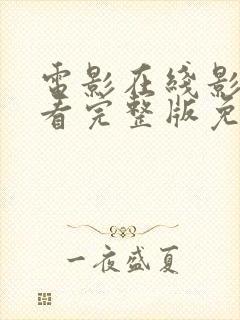 电影在线影
看完整版免
一夜盛夏